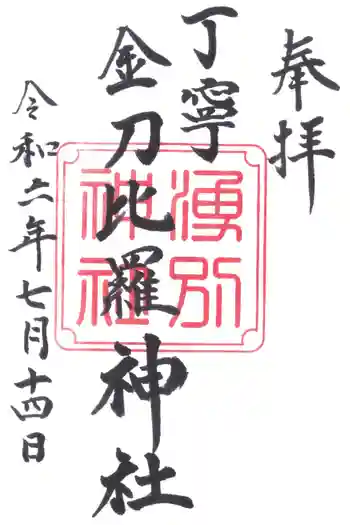 奉拝
丁寧
金刀比羅神社
湧別
神社
令和六年七月十四日